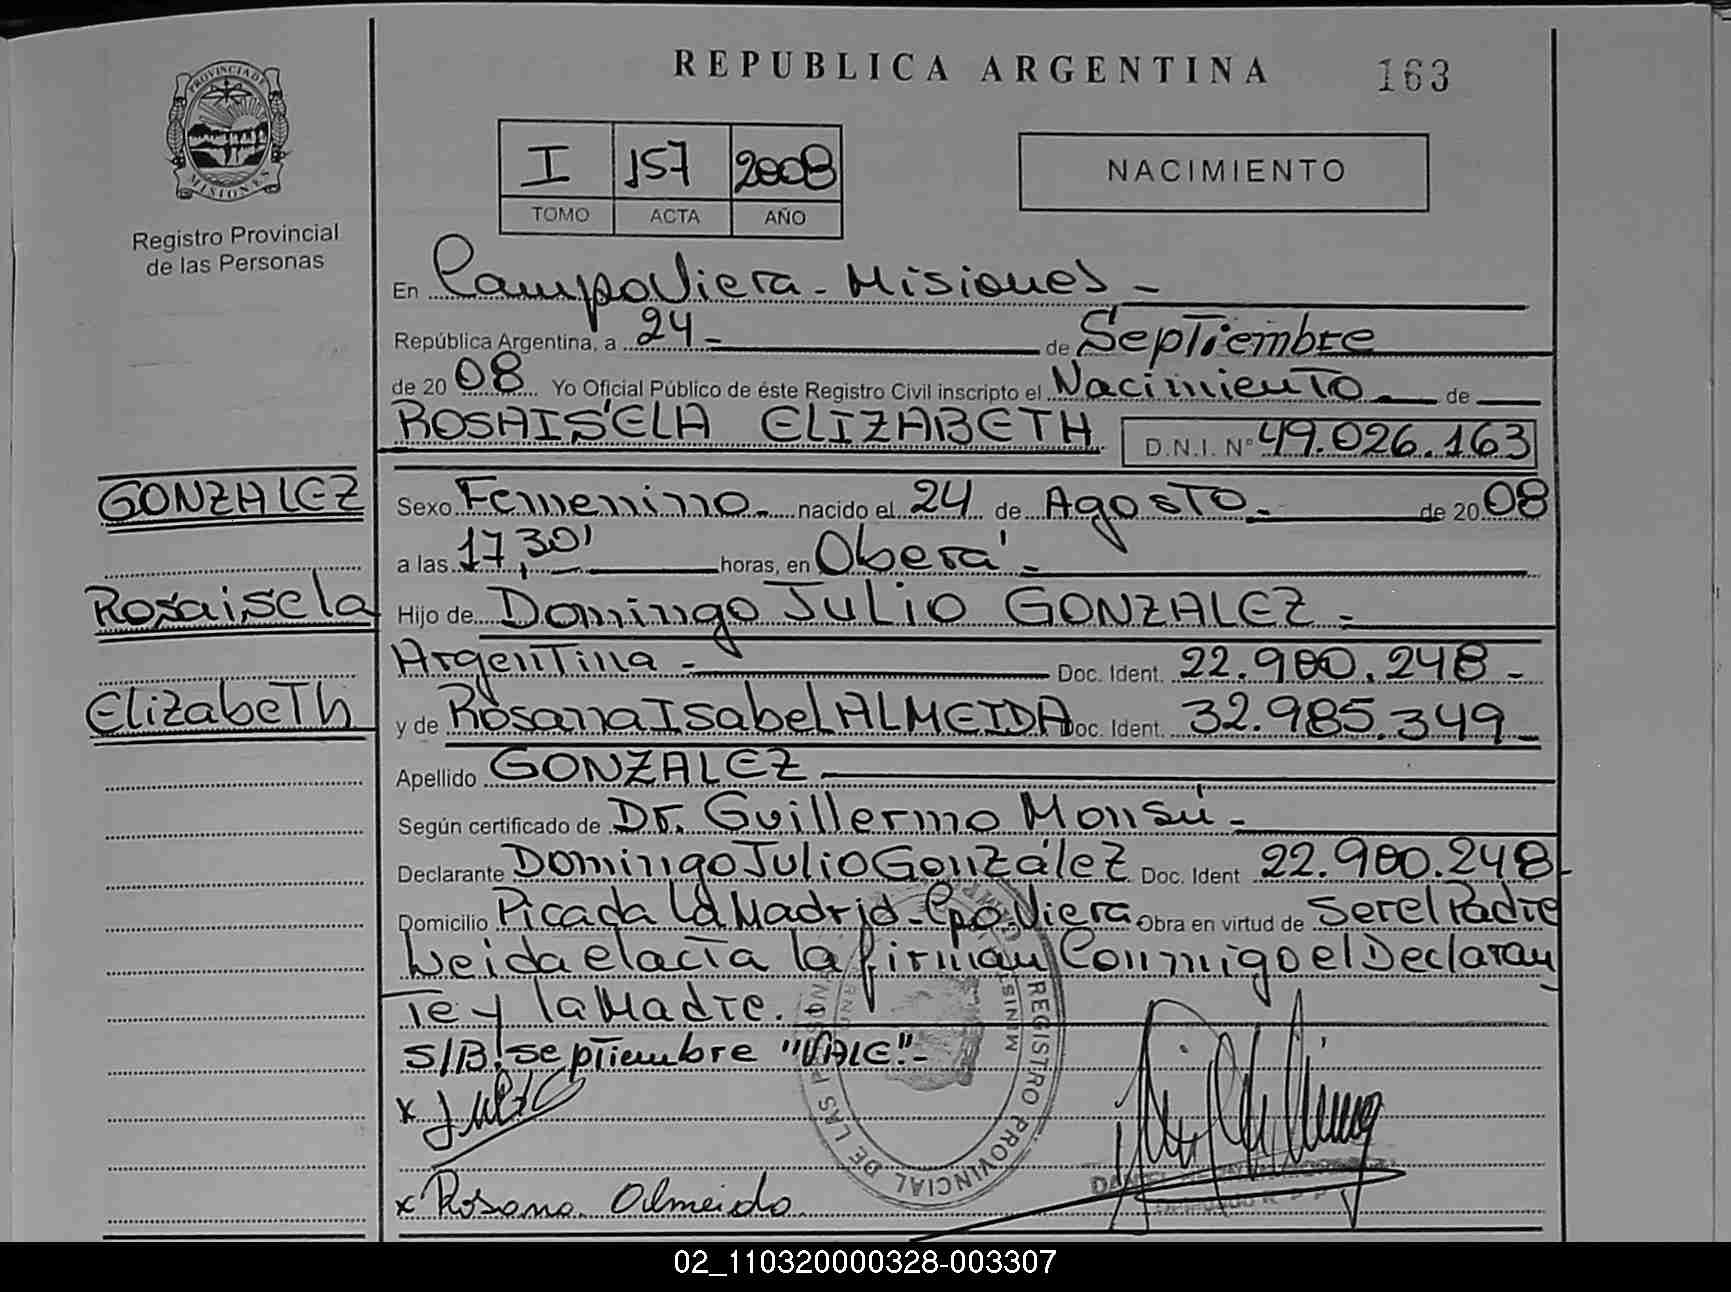 REPUBLICA ARGENTINA
163
PROVINCIA DE MISIONES
Registro Provincial
de las Personas
I 157 2008
TOMO ACTA AÑO
NACIMIENTO
En Campo Viera - Misiones -
República Argentina, a 24- de Septiembre
de 20 08 Yo Oficial Público de éste Registro Civil inscripto el Nacimiento de
ROSAISELA ELIZABETH D.N.I. Nº 49.026.163
GONZALEZ
Rosaisela
Elizabeth
Sexo Femenino- nacido el 24 de Agosto- de 20 08
a las 17,30' horas, en Oberá-
Hijo de Domingo Julio GONZALEZ-
Argentina - Doc. Ident. 22.900.248-
y de Rosana Isabel ALMEIDA Doc. Ident. 32.985.349-
Apellido GONZALEZ
Según certificado de Dr. Guillermo Monsú-
Declarante Domingo Julio González Doc. Ident 22.900.248-
Domicilio Picada La Madrid-Cpo Viera Obra en virtud de Ser el Padre
Leida el acta la firman Conmigo el Declaran
te y la Madre.
S/B: septiembre "VALE"-
x Julio
x Rosana Almeida
REGISTRO PROVINCIAL DE LAS PERSONAS
02_110320000328-003307